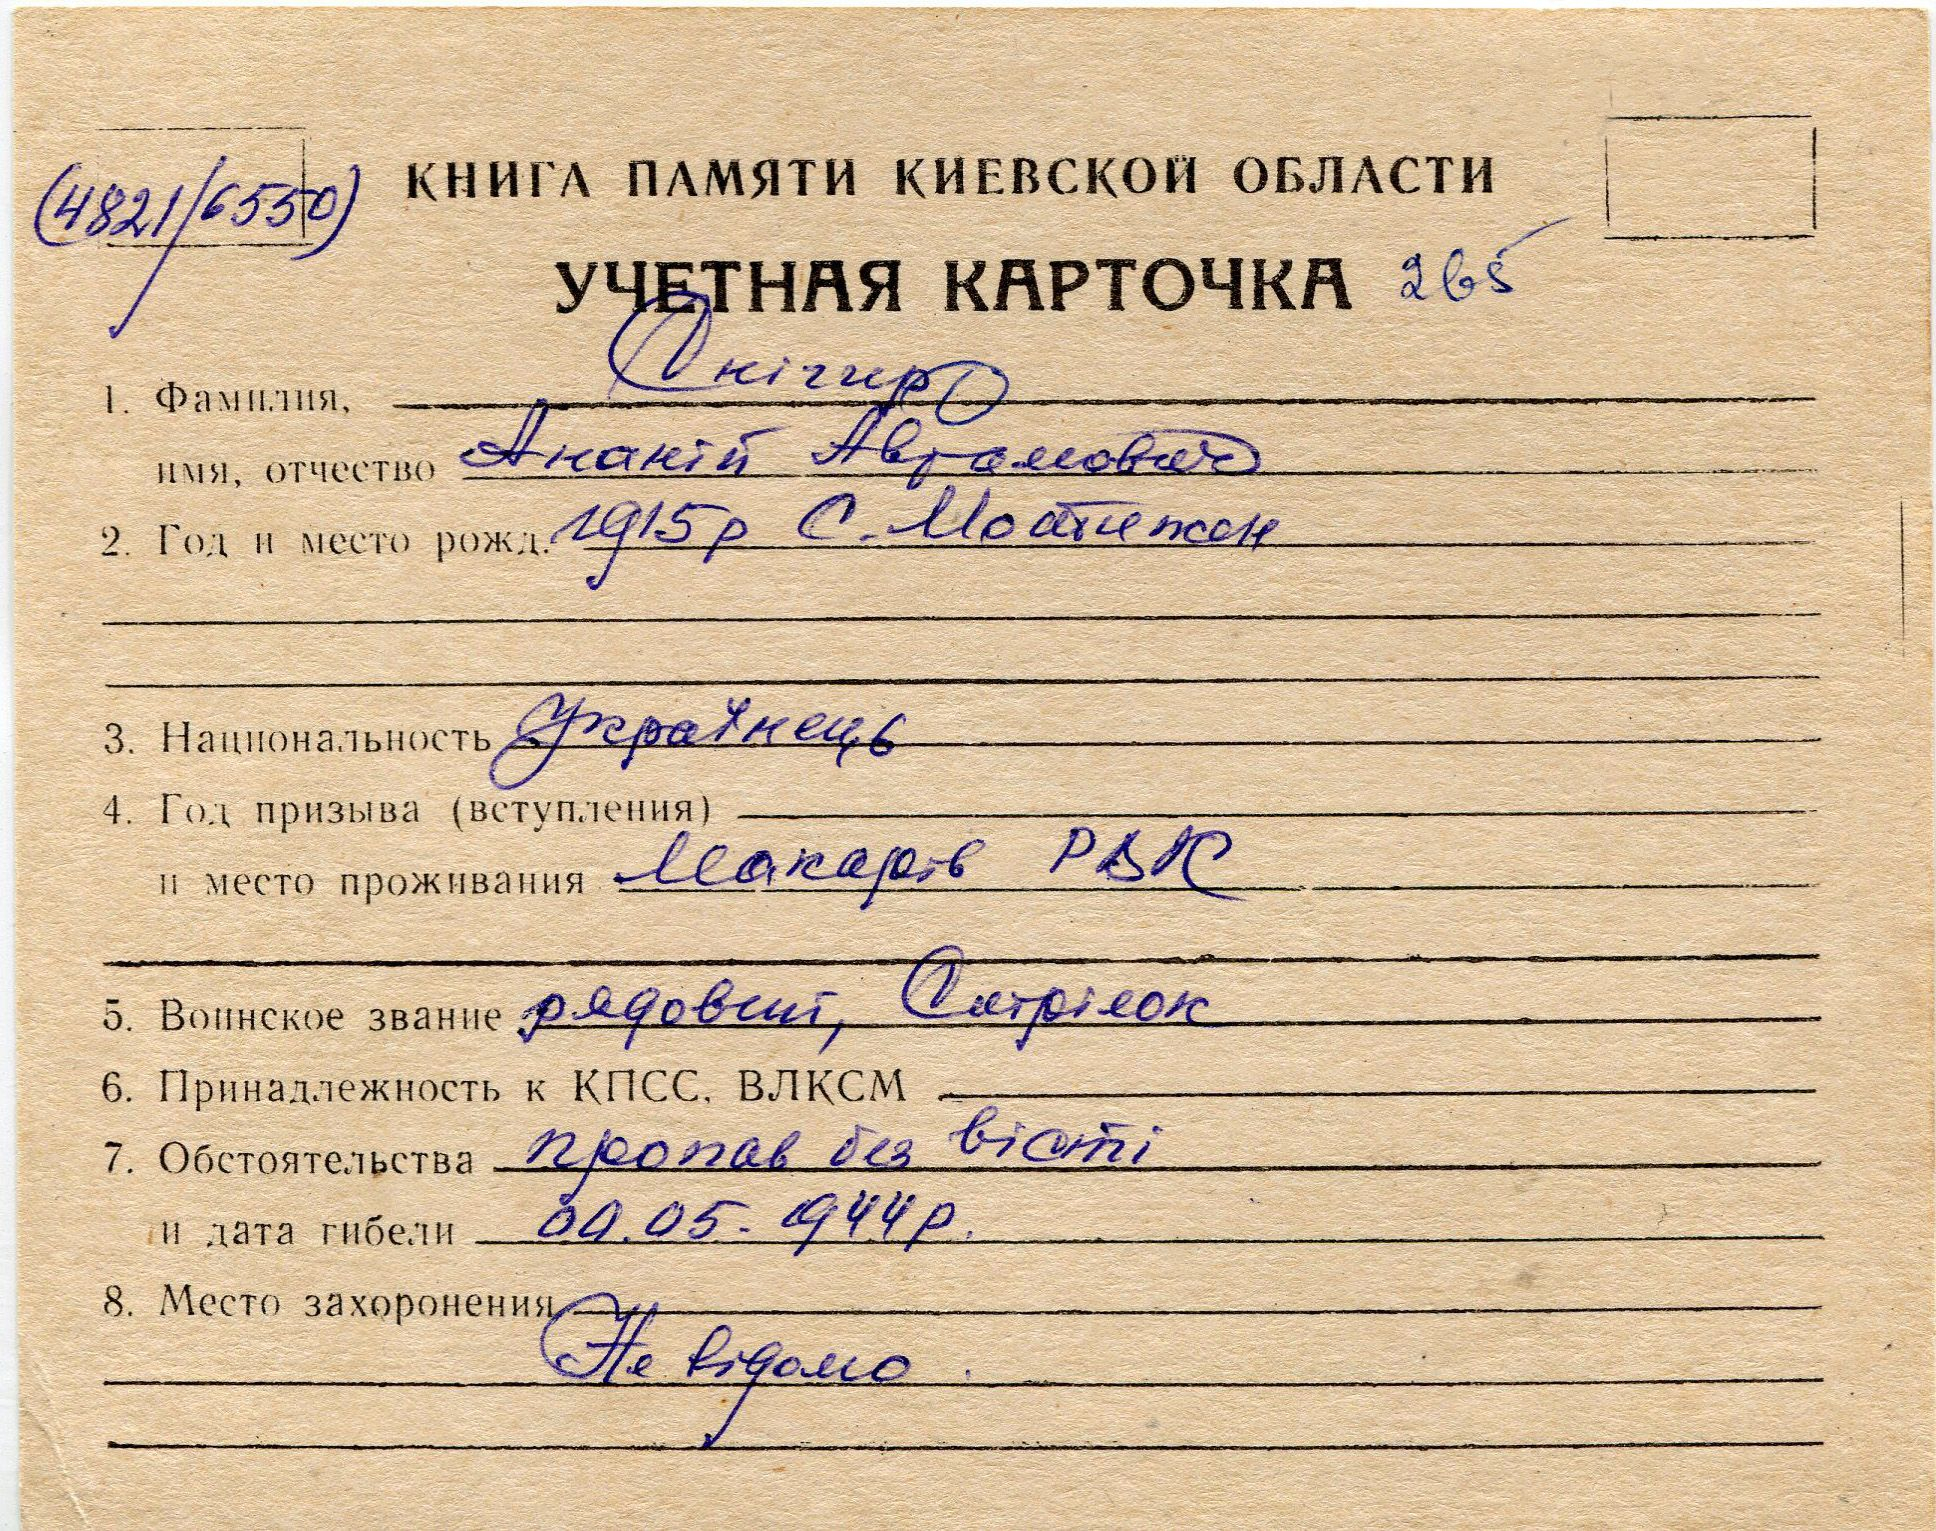 (4821/6550)
КНИГА ПАМЯТИ КИЕВСКОЙ ОБЛАСТИ
УЧЕТНАЯ КАРТОЧКА 265
1. Фамилия, Снігир
имя, отчество Ананій Аврамович
2. Год и место рожд. 1915р С. Мотижен
3. Национальность Українець
4. Год призыва (вступления)
и место проживания Макарів РВК
5. Воинское звание рядовий, Стрілок
6. Принадлежность к КПСС, ВЛКСМ
7. Обстоятельства пропав без вісті
и дата гибели 05. 1944р.
8. Место захоронения
Не відомо.